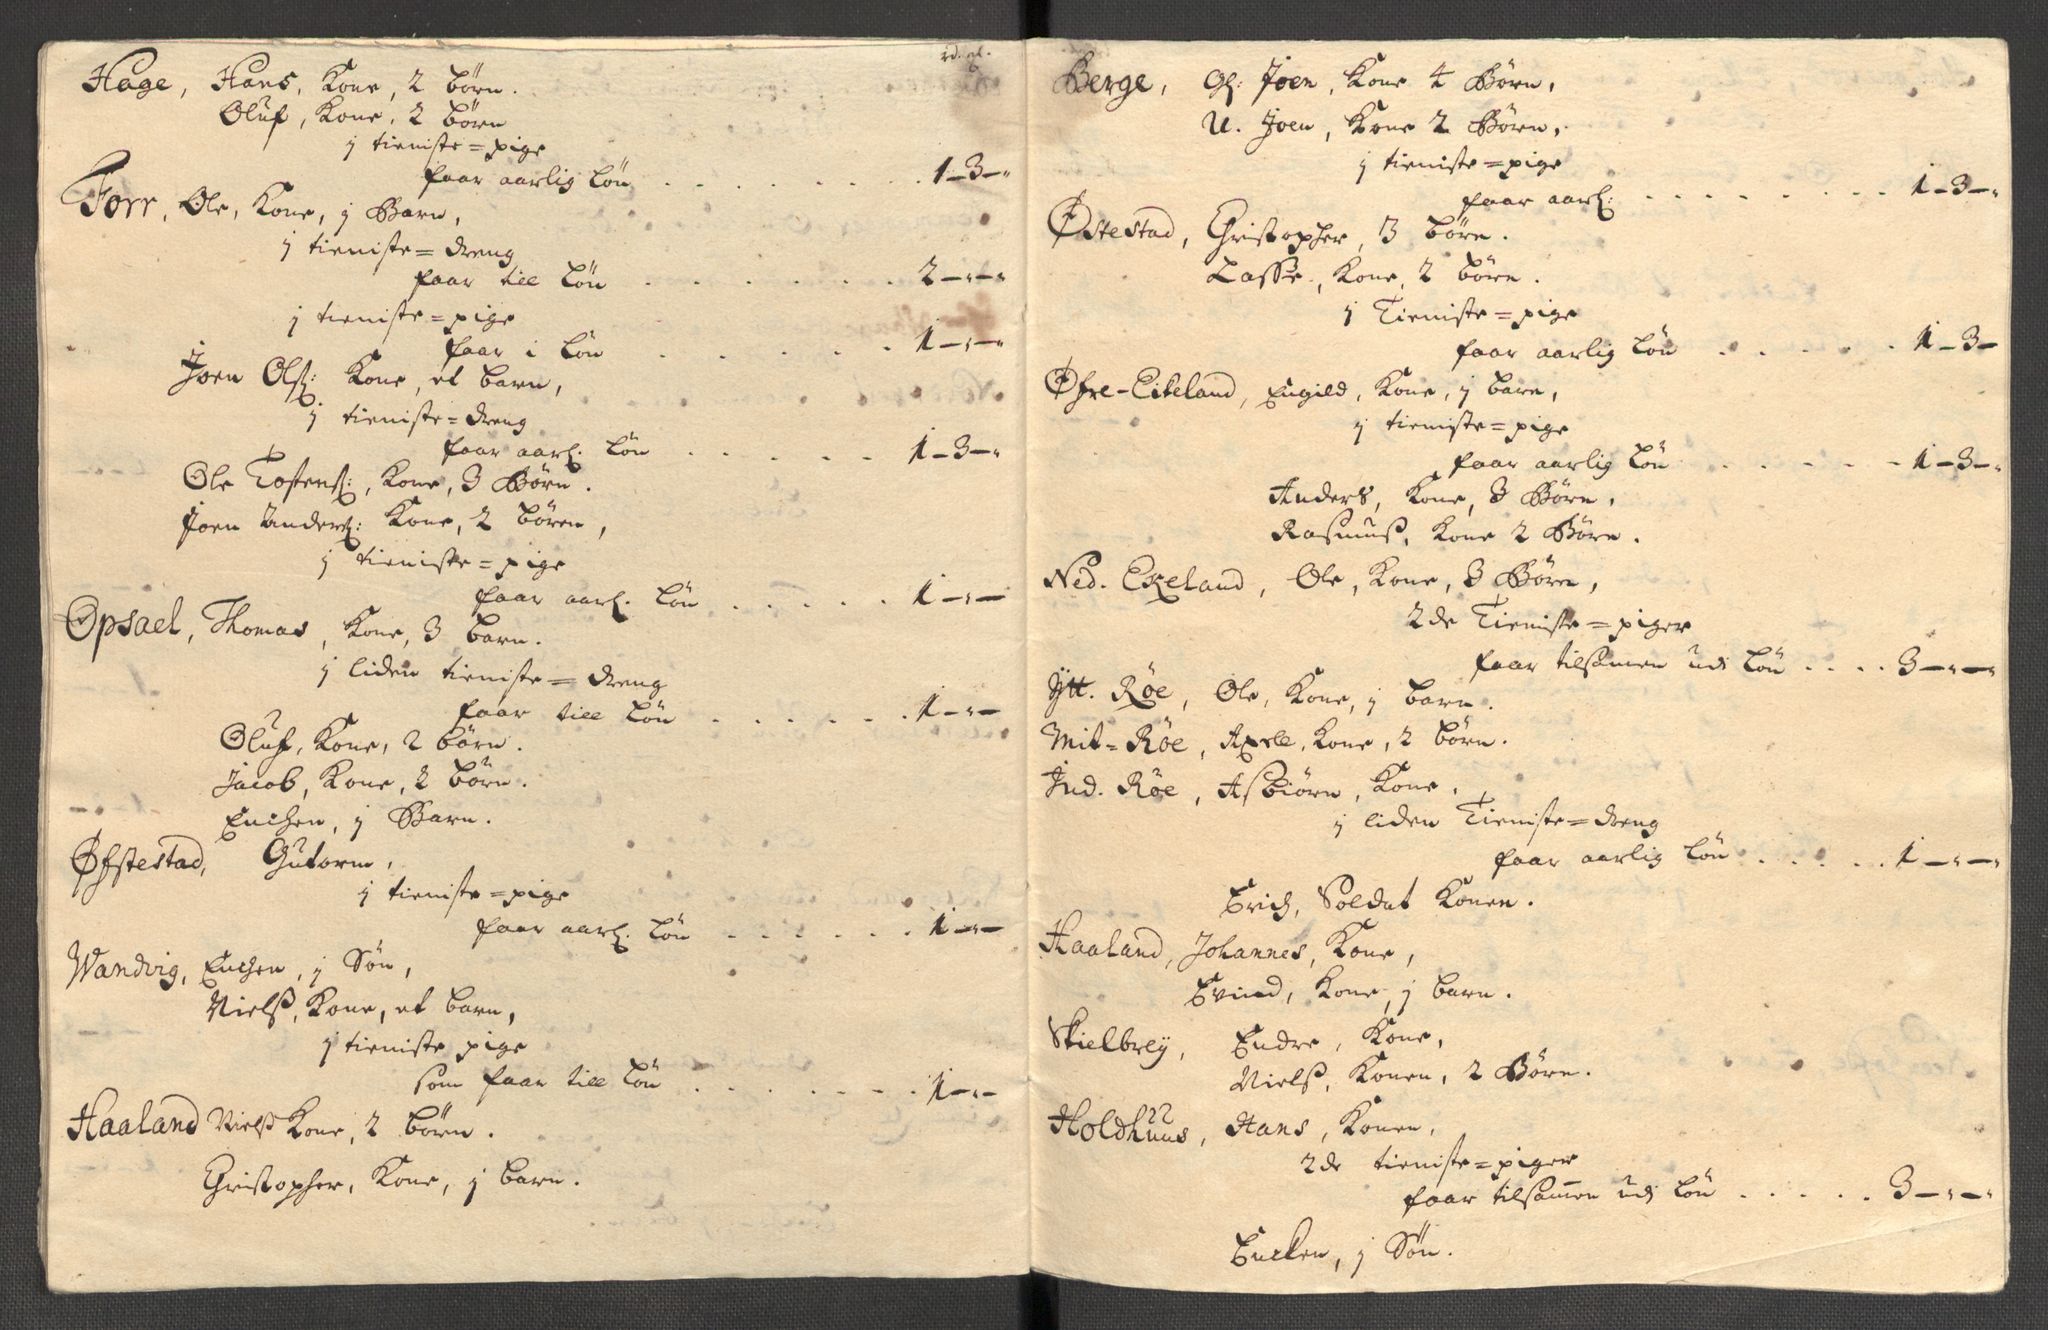 Hage, Hans, Kone, 2 børn.
Oluf, Kone, 2 børn
j tieniste=pige
faar aarlig Løn . . . . . . . 1-3-"
Torr, Ole, Kone, j Barn,
j tieniste=dreng
faar till Løn . . . . . . 2-"-"
j tieniste=pige
faar i Løn . . . . . 1-"-
Joen Olß: Kone, et barn,
j tieniste=dreng
faar aarl. Løn . . . . . 1-3-"
Ole Tostenß:, Kone, 3 Børn.
Joen Anderß: Kone, 2 børen,
j tieniste=pige
faar aarl. Løn . . . . . 1-"-
Opsael, Thomas, Kone, 3 barn.
j liden tieniste=dreng
faar till Løn . . . . . . 1-"-
Oluf, Kone, 2 børn.
Jacob, Kone, 2 børn.
Enchen, j Barn.
Øfstestad, Gutorm,
j tieniste=pige
faar aarl. Løn . . . . . . 1-"-
Wandvig, Enchen, j Søn,
Nielß, Kone, et barn,
j tieniste pige
som faar till Løn . . . . . . . 1-"-
Haaland Nielß Kone, 2 børn.
Christopher, Kone, j barn.
Berge, Gl: Joen, Kone 4 Børn,
U. Joen, Kone 2 Børn,
j tieniste=pige
faar aarl: . . . . . . . . . 1-3-"
Østestad, Christopher, 3 børn.
Lasse, Kone, 2 børn.
j Tieniste=pige
faar aarlig Løn . . . . . 1-3-
Øfre-Eikeland, Engild, Kone, j barn,
j tieniste=pige
faar aarlig Løn . . . . . 1-3-"
Anders, Kone, 3 Børn,
Rasmus, Kone 2 Børn.
Ned. Ekeland, Ole, Kone, 3 Børn,
2de Tieniste=piger
faar tilsamen udj Løn . . . . 3-"-"
Ytt. Røe, Ole, Kone, j barn.
Mit=Røe, Axell, Kone, 2 børn.
Ind. Røe, Asbiørn, Kone,
j liden Tieniste=dreng
faar aarlig Løn . . . . . 1-"-"
Erich, Soldat Konen.
Haaland, Johannes, Kone,
Evind, Kone, j barn.
Skielbrej, Endre, Kone,
Nielß, Konen, 2 Børn.
Holdhuus, Hans, Konen,
2de tieniste=piger
faar tilsammen udj Løn . . . . . 3-"-"
Encken, j Søn.